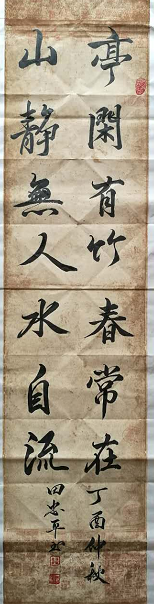 亭閑有竹春常在
山靜無人水自流
丁酉仲秋
田忠平书